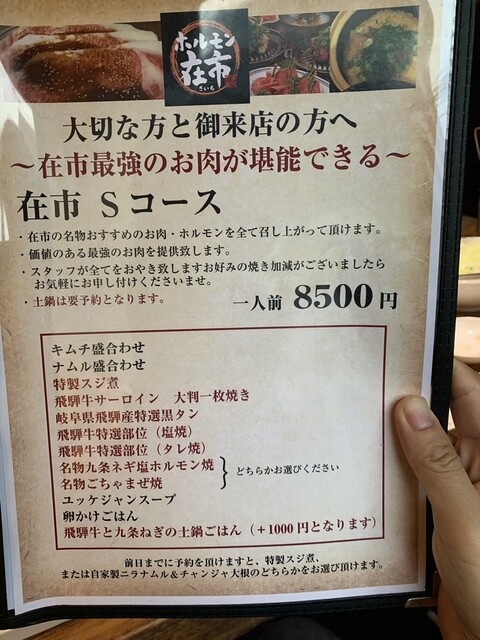 ホルモン
在市
さいち
大切な方と御来店の方へ
〜在市最強のお肉が堪能できる〜
在市 Sコース
・在市の名物おすすめのお肉・ホルモンを全て召し上がって頂けます。
・価値のある最強のお肉を提供致します。
・スタッフが全てをおやき致しますお好みの焼き加減がございましたら
お気軽にお申し付けくださいませ。
・土鍋は要予約となります。
一人前 8500円
キムチ盛合わせ
ナムル盛合わせ
特製スジ煮
飛騨牛サーロイン 大判一枚焼き
岐阜県飛騨産特選黒タン
飛騨牛特選部位（塩焼）
飛騨牛特選部位（タレ焼）
名物九条ネギ塩ホルモン焼
名物ごちゃまぜ焼
どちらかお選びください
ユッケジャンスープ
卵かけごはん
飛騨牛と九条ねぎの土鍋ごはん（＋1000円となります）
前日までに予約を頂けますと、特製スジ煮、
または自家製ニラナムル＆チャンジャ大根のどちらかをお選び頂けます。